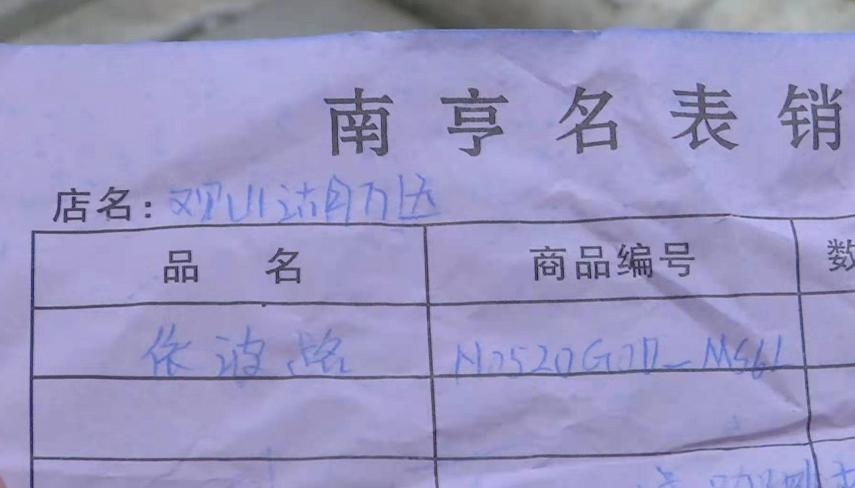 南亨名表销
店名: 观山湖万达
品名 商品编号 数
依波路 N0520G0D-MS61